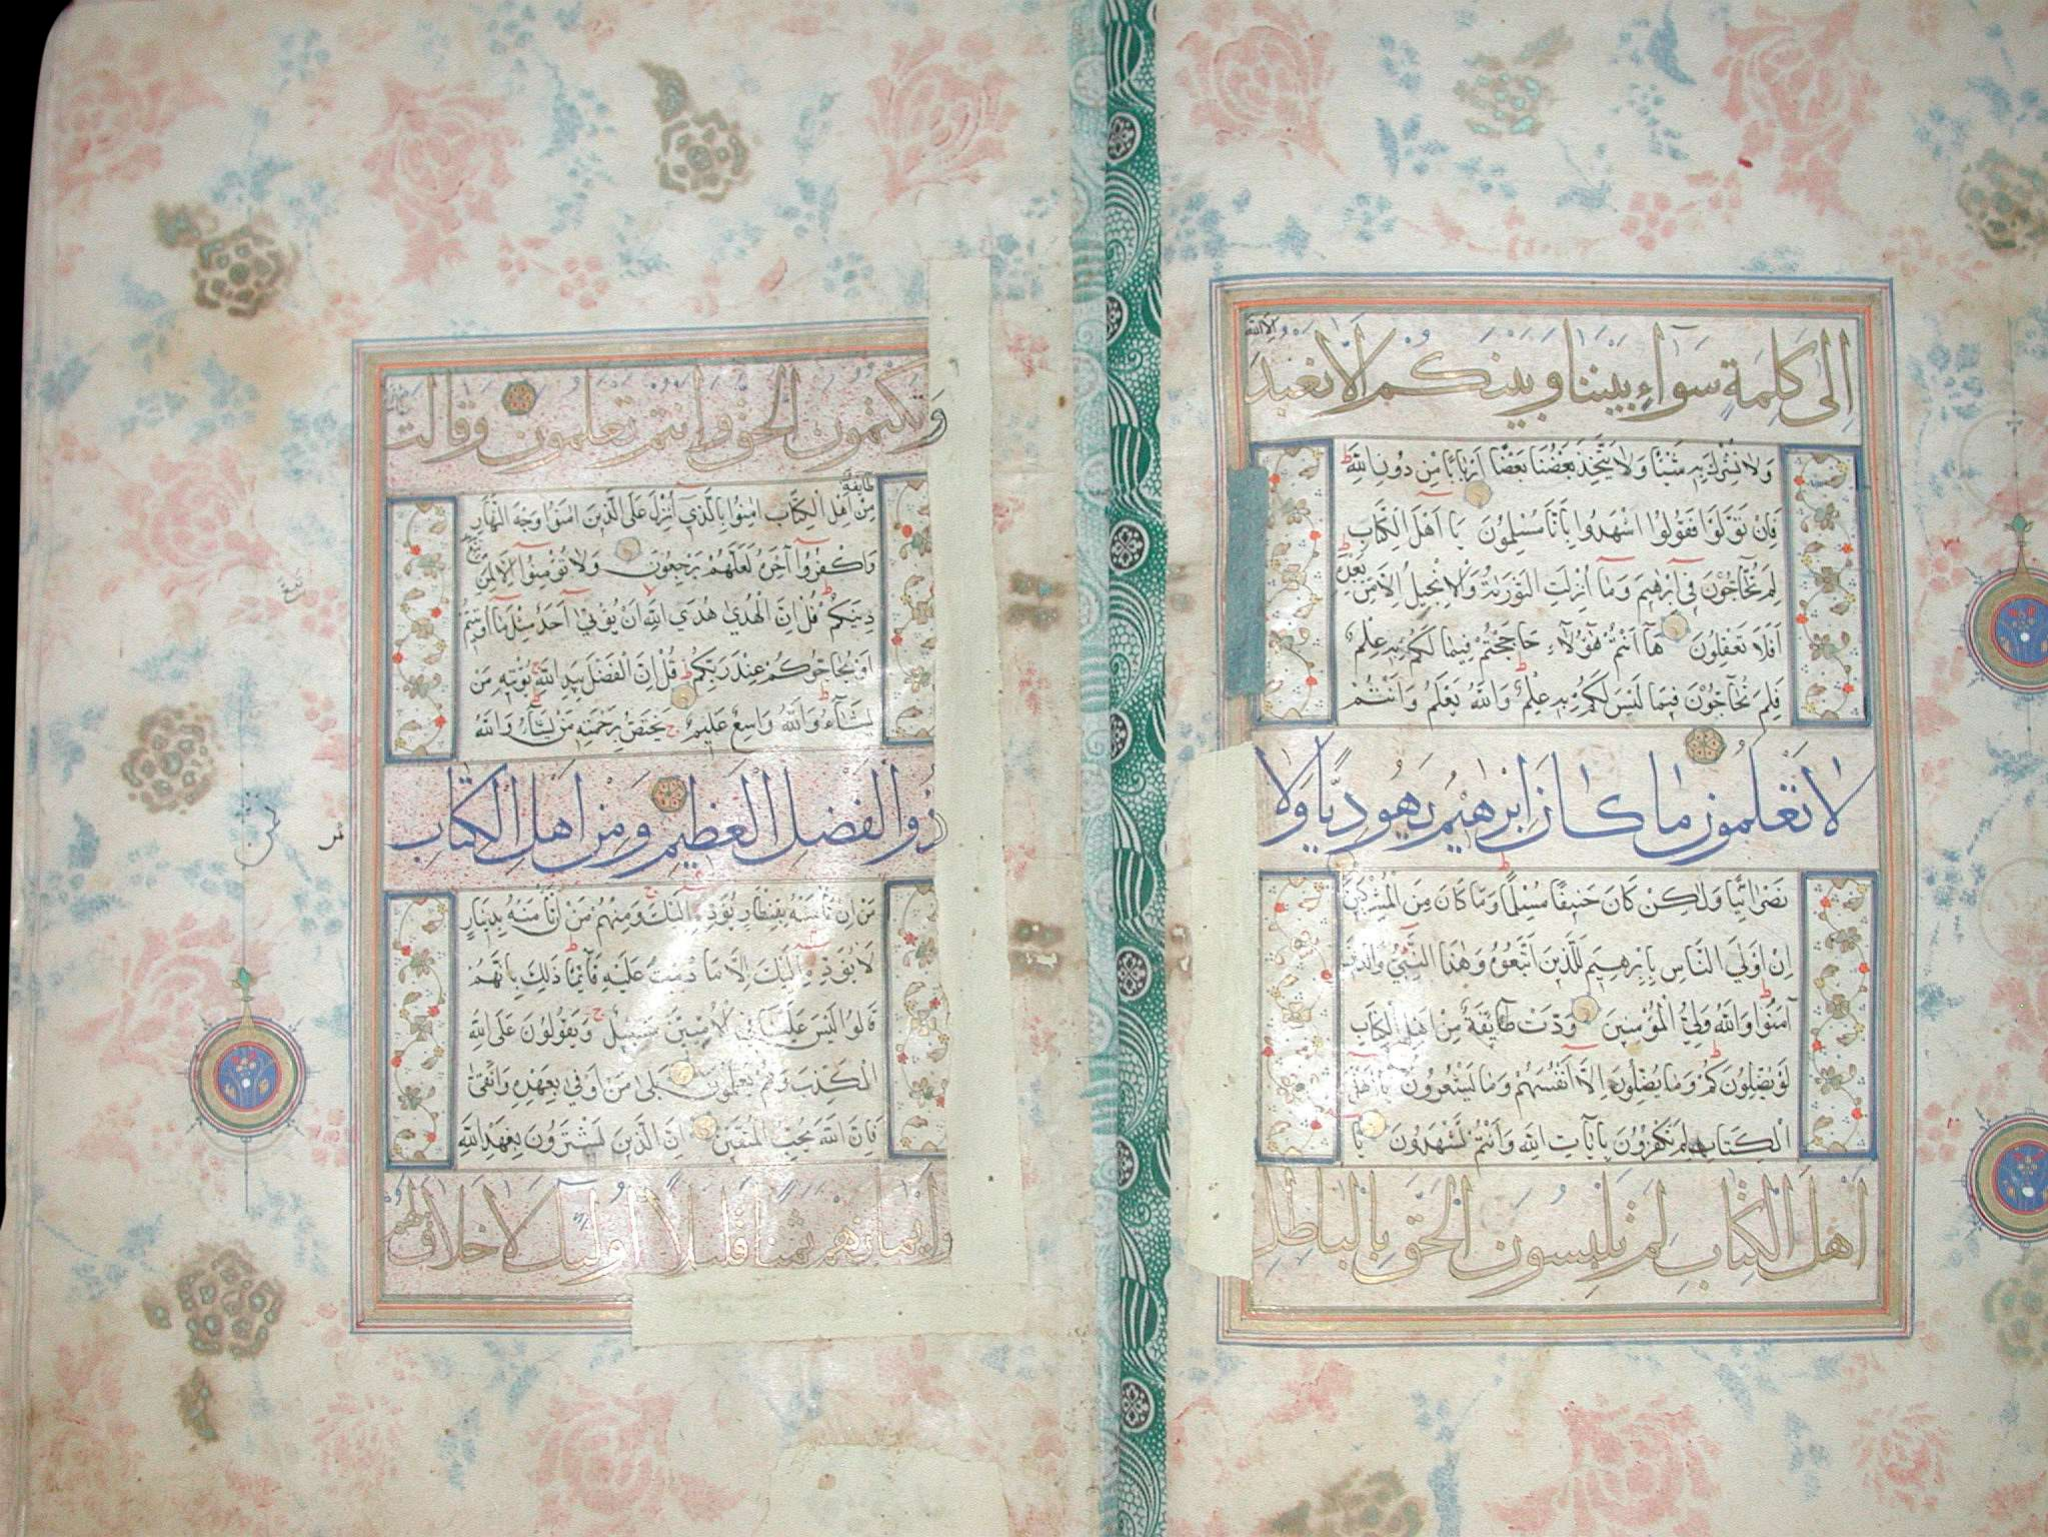 إلى كلمة سواء بيننا وبينكم الا نعبد
الا الله
ولا نشرك به شيئا ولا يتخذ بعضنا بعضا اربابا من دون الله
فان تولوا فقولوا اشهدوا بانا مسلمون يا اهل الكتاب
لم تحاجون في ابرهيم وما انزلت التورية والانجيل الا من بعده
افلا تعقلون ها انتم هؤلاء حاججتم فيما لكم به علم
فلم تحاجون فيما ليس لكم به علم والله يعلم وانتم
لا تعلمون ما كان ابرهيم يهوديا ولا
نصرانيا ولكن كان حنيفا مسلما وما كان من المشركين
ان اولي الناس بابرهيم للذين اتبعوه وهذا النبي والذين
آمنوا والله ولي المؤمنين ودت طائفة من اهل الكتاب
لو يضلونكم وما يضلون الا انفسهم وما يشعرون يا اهل
الكتاب لم تكفرون بايات الله وانتم تشهدون يا
اهل الكتاب لم تلبسون الحق بالباطل
وتكتمون الحق وانتم تعلمون وقالت
طايفة
من اهل الكتاب امنوا بالذي انزل على الذين امنوا وجه النهار
واكفروا آخره لعلهم يرجعون ولا تؤمنوا الا لمن تبع
دينكم قل ان الهدى هدى الله ان يؤتى احد مثل ما اوتيتم
او يحاجوكم عند ربكم قل ان الفضل بيد الله يؤتيه من
يشاء والله واسع عليم يختص برحمته من يشاء والله
ذوا الفضل العظيم ومن اهل الكتاب
من ان تامنه بقنطار يؤده اليك ومنهم من ان تامنه بدينار
لا يؤده اليك الا ما دمت عليه قائما ذلك بانهم
قالوا ليس علينا في الاميين سبيل ويقولون على الله
الكذب وهم يعلمون بلى من اوفى بعهده واتقى
فان الله يحب المتقين ان الذين يشترون بعهد الله
وايمانهم ثمنا قليلا اولئك لا خلاق لهم